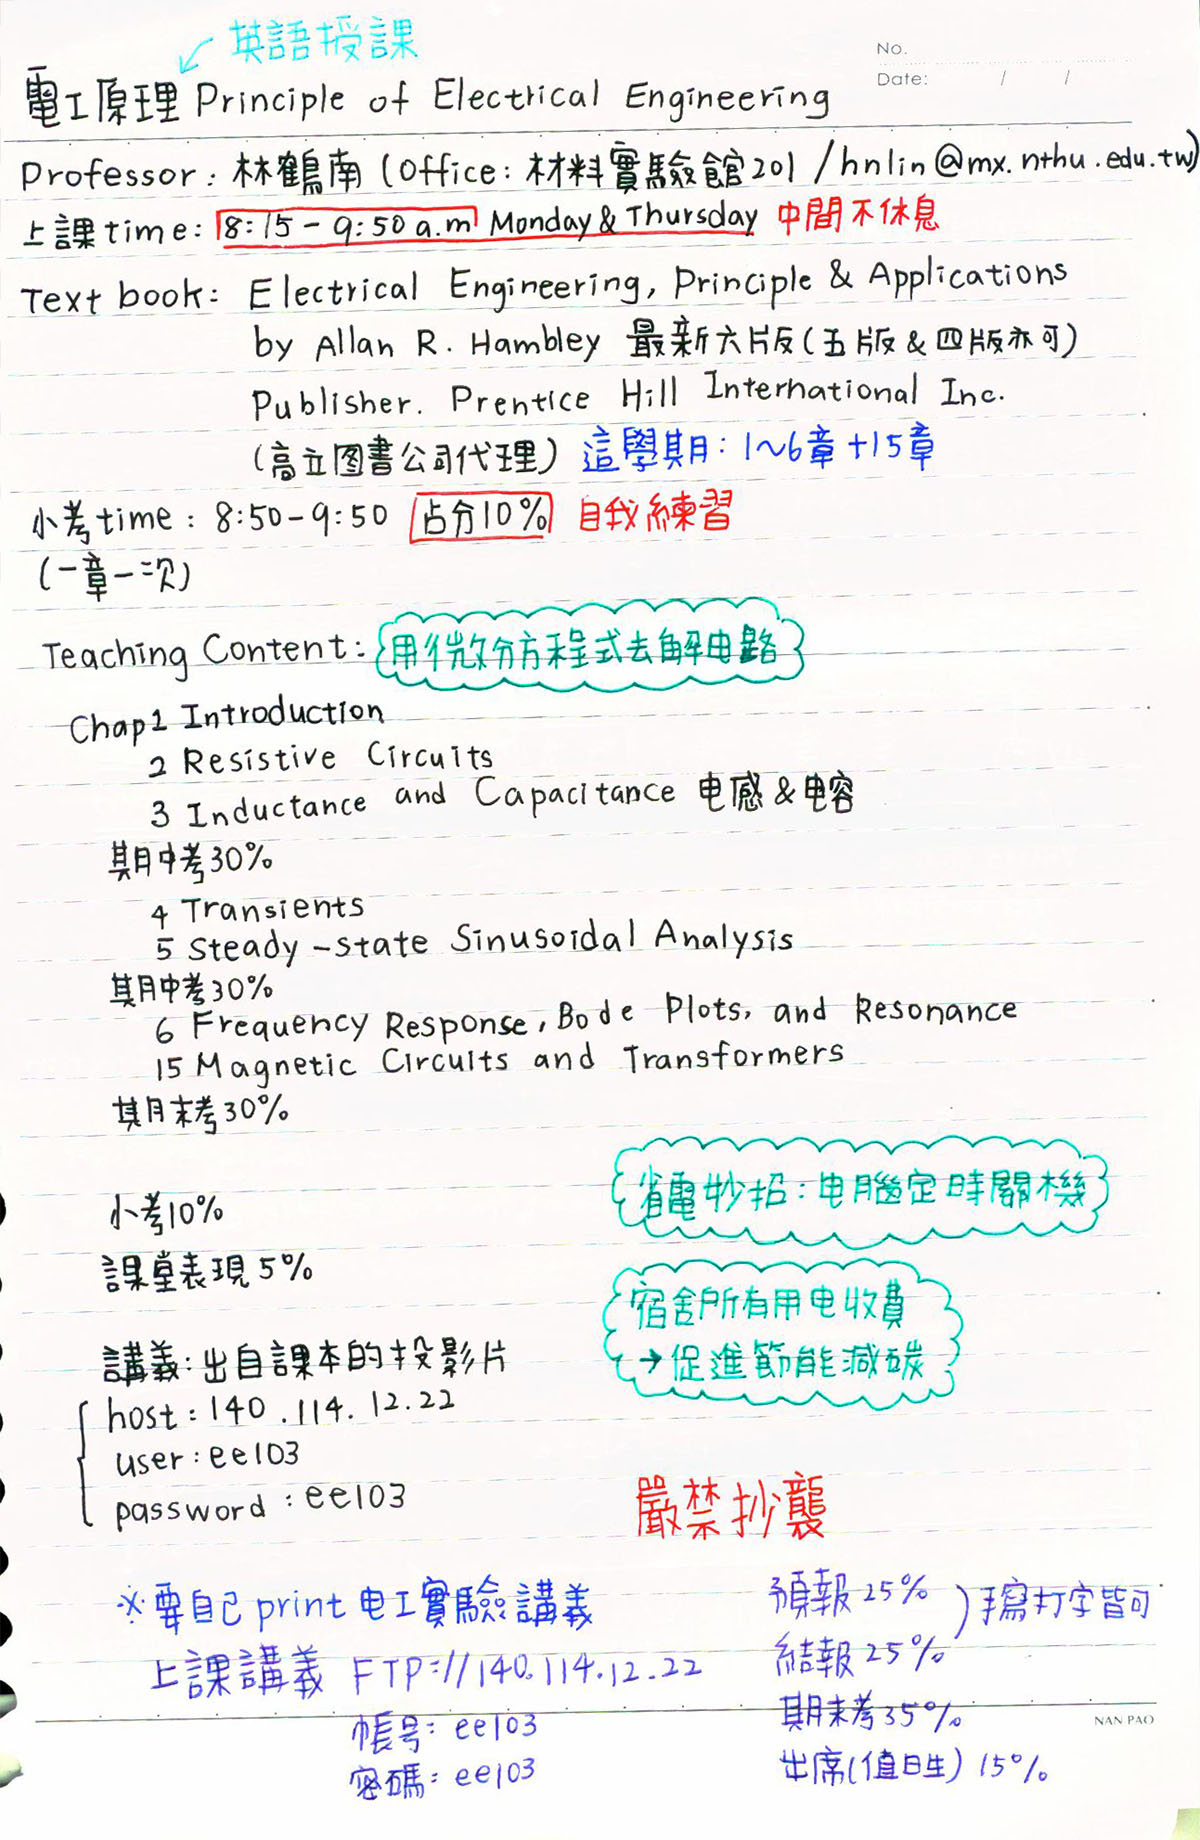 英語授課
No.
Date: / /
電工原理 Principle of Electrical Engineering
Professor: 林鶴南 (Office: 材料實驗館201 /hnlin@mx.nthu.edu.tw)
上課time: 8:15-9:50 a.m Monday & Thursday 中間不休息
Text book: Electrical Engineering, Principle & Applications
by Allan R. Hambley 最新六版(五版&四版亦可)
Publisher. Prentice Hill International Inc.
(高立图書公司代理) 這學期: 1~6章+15章
小考time: 8:50-9:50 占分10% 自我練習
(一章一次)
Teaching Content: 用微分方程式去解电路
Chap1 Introduction
2 Resistive Circuits
3 Inductance and Capacitance 电感&电容
期中考30%
4 Transients
5 Steady-state Sinusoidal Analysis
期中考30%
6 Frequency Response, Bode Plots, and Resonance
15 Magnetic Circuits and Transformers
期末考30%
省電妙招: 电腦定時關機
小考10%
課堂表現5%
宿舍所有用电收費
→促進節能減碳
講義: 出自課本的投影片
host: 140.114.12.22
user: ee103
password: ee103
嚴禁抄襲
※要自己print电工實驗講義
上課講義 FTP://140.114.12.22
帳号: ee103
密碼: ee103
預報25%
結報25%
)手寫打字皆可
期末考35%
出席(值日生) 15%
NAN PAO